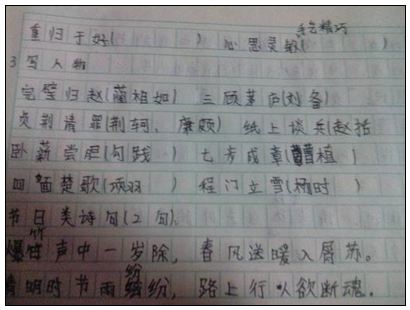 手艺精巧
重归于好( ) 心思灵敏( )
3写人物
完璧归赵(蔺相如) 三顾茅庐(刘备)
负荆请罪(荆轲、廉颇) 纸上谈兵(赵括
卧薪尝胆(勾践) 七步成章(曹植)
四面楚歌(项羽) 程门立雪(杨时)
节日类诗句(2句)
爆竹声中一岁除,春风送暖入屠苏。
清明时节雨纷纷,路上行人欲断魂.